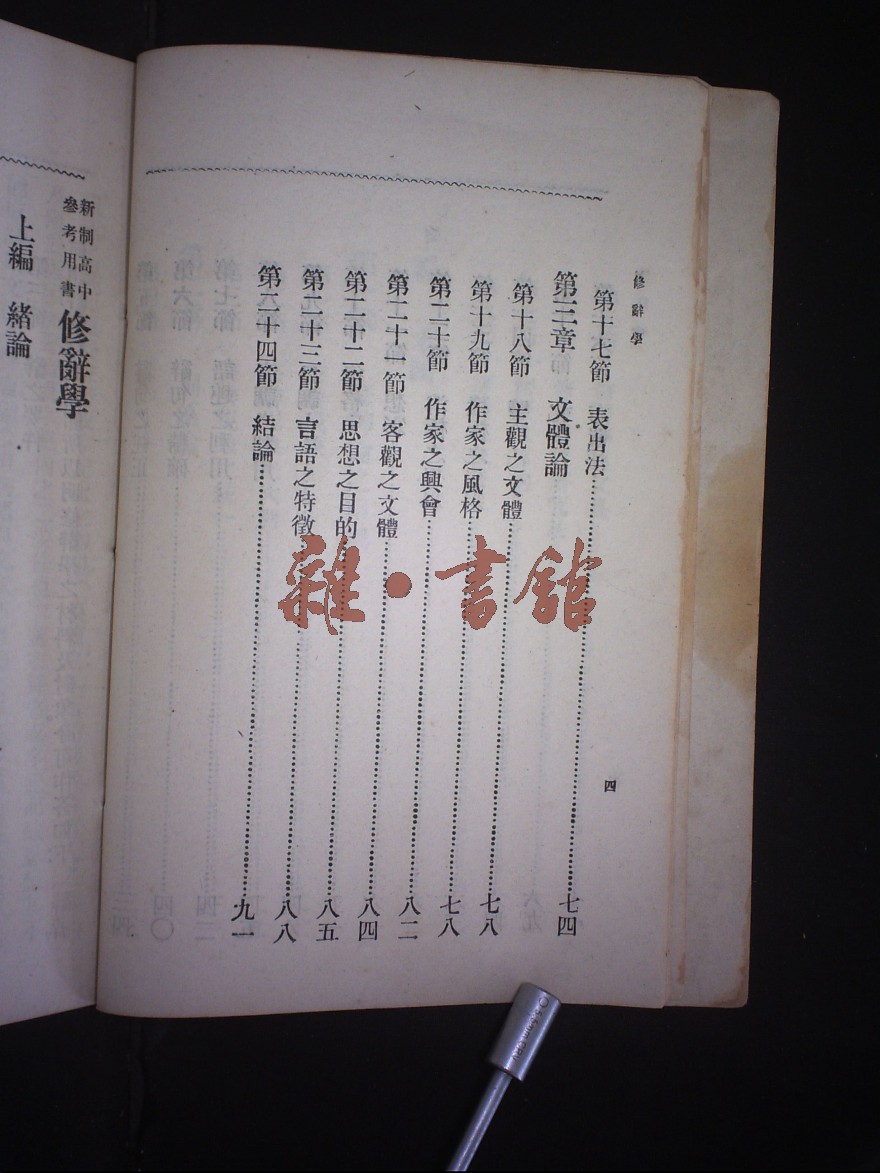 修辭學
四
第十七節 表出法……七四
第三章 文體論
第十八節 主觀之文體……七八
第十九節 作家之風格……七八
第二十節 作家之興會……八二
第二十一節 客觀之文體……八四
第二十二節 思想之目的……八五
第二十三節 言語之特徵……八八
第二十四節 結論……九一
新制高中
參考用書
修辭學
上編 緒論
雜·書館